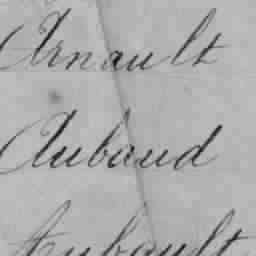 Arnault
Aubaud
Aubault